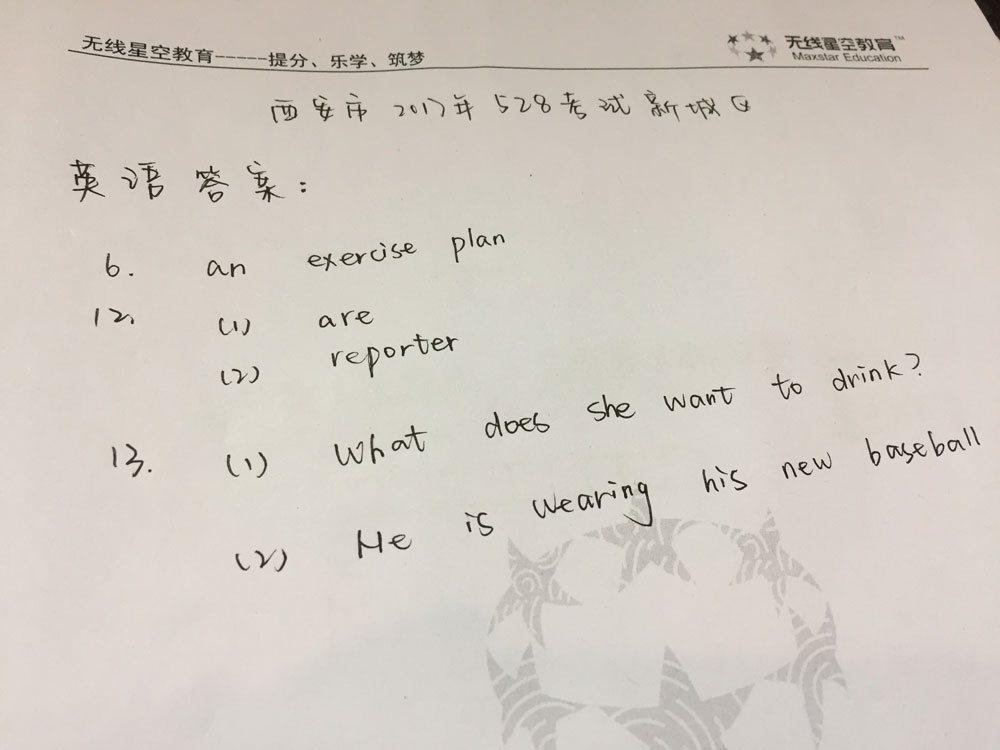 无线星空教育-----提分、乐学、筑梦
无线星空教育™
Maxstar Education
西安市 2017年 528考试 新城区
英语答案:
6. an exercise plan
12. (1) are
(2) reporter
13. (1) What does she want to drink?
(2) He is wearing his new baseball